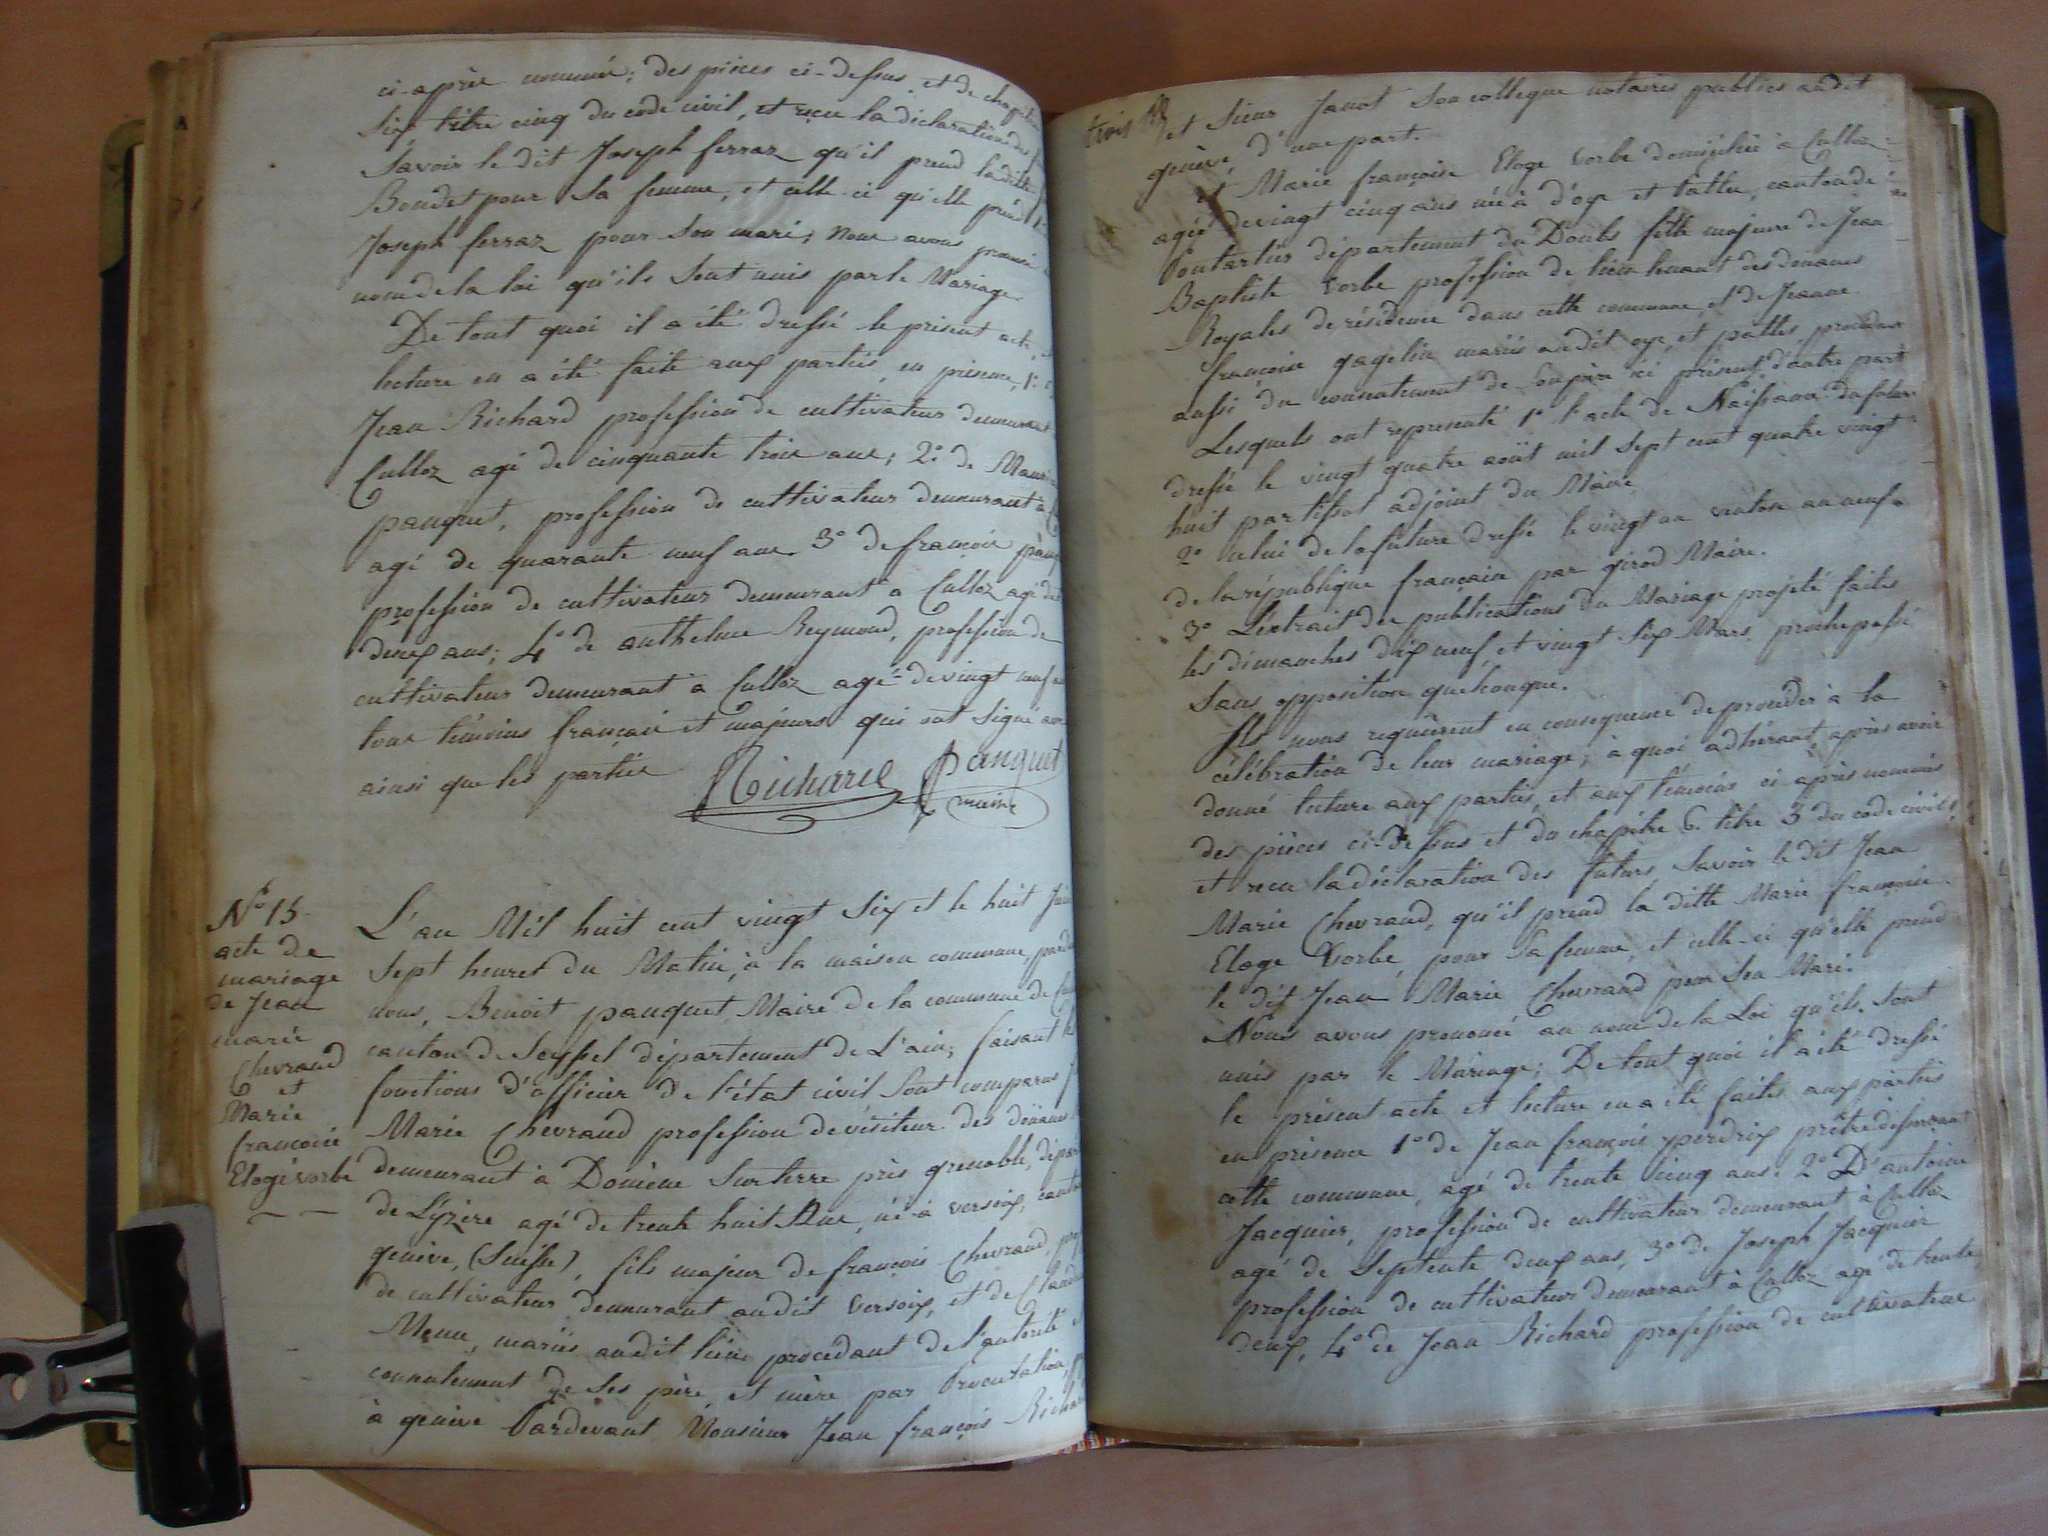 ci-après nommés; des pièces ci-dessus et de chapitre
six titre cinq du code civil, et reçu la déclaration des
Savoir le dit Joseph ferraz qu'il prend la ditte
Boudet pour sa femme, et celle-ci qu'elle prend
Joseph ferraz pour son mari; nous avons prononcé
nom de la loi qu'ils sont unis par le Mariage.
De tout quoi il a été dressé le présent acte,
lecture en a été faite aux parties, en présence, 1°
Jean Richard profession de cultivateur demeurant
Culloz agé de cinquante trois ans; 2° de
panquet, profession de cultivateur demeurant à
agé de quarante neuf ans. 3° de francois
profession de cultivateur demeurant a Culloz agé de
deux ans; 4° de anthelme Reymond, profession de
cultivateur demeurant a Culloz agé de vingt neuf
tous témoins français et majeurs qui ont signé avec
ainsi que les parties
Richard panquet
maire
N° 15
acte de
mariage
de Jean
marie
Chevrand
et
Marie
francoise
Eloge vorbe
L'an Mil huit cent vingt six et le huit
sept heures du Matin, à la maison commune,
nous, Benoit panquet Maire de la commune de
canton de Seyssel département de L'ain, faisant
fonctions d'officier de l'état civil sont comparus
Marie Chevrand profession de visiteur des douanes
demeurant à Domène sur terre près grenoble,
de L'yzere agé de trente huit Ans, né à versoix,
genève, (Suisse), fils majeur de françois Chevrand,
de cultivateur demeurant audit versoix, et de
mariés audit lieu procédant de l'autorité
consentement de ses père et mère par Procuration,
à genève Pardevant Monsieur Jean françois
trois
et Sieur Janot son collegue notaires publics audit
genève, d'une part.
et Marie françoise Eloge Vorbe domiciliée à Culloz
agée de vingt cinq ans née à d'oye et pallet, canton de
Pontarlier département du Doubs fille majeure de Jean
Baptiste Vorbe profession de lieutenant des douanes
Royales de résidence dans cette commune, et de Jeanne
françoise gagelin mariés audit oye, et pallet, procédant
aussi du consentement de son père ici présent, d'autre part
Lesquels ont representé 1° l'acte de Naissance du futur
dressé le vingt quatre août mil sept cent quatre vingt
huit par tissot adjoint du Maire
2° celui de la future dressé le vingt un ventose an neuf
de la république française par girod Maire.
3° L'extrait des publications du Mariage projeté faites
les dimanches dix neuf, et vingt six Mars, proche passé
sans opposition quelconque.
Ils nous requièrent en consequence de procéder à la
célébration de leur mariage; à quoi adhérant, après avoir
donné lecture aux parties, et aux témoins ci après nommés
des pièces ci-dessus et du chapitre 6. titre 5 du code civil,
et reçu la déclaration des futurs Savoir le dit Jean
Marie Chevrand, qu'il prend la ditte Marie françoise
Eloge Vorbe, pour sa femme, et celle-ci qu'elle prend
le dit Jean Marie Chevrand pour son Mari.
Nous avons prononcé au nom de la Loi qu'ils sont
unis par le Mariage; De tout quoi il a été dressé
le présent acte et lecture en a été faites aux parties
en présence 1° de Jean françois perdrix prêtre desservant
cette commune, agé de trente cinq ans. 2° D'antoine
Jacquier, profession de cultivateur demeurant à Culloz
agé de septente deux ans, 3° de Joseph Jacquier
profession de cultivateur demeurant à Culloz agé de trente
deux, 4° de Jean Richard profession de cultivateur